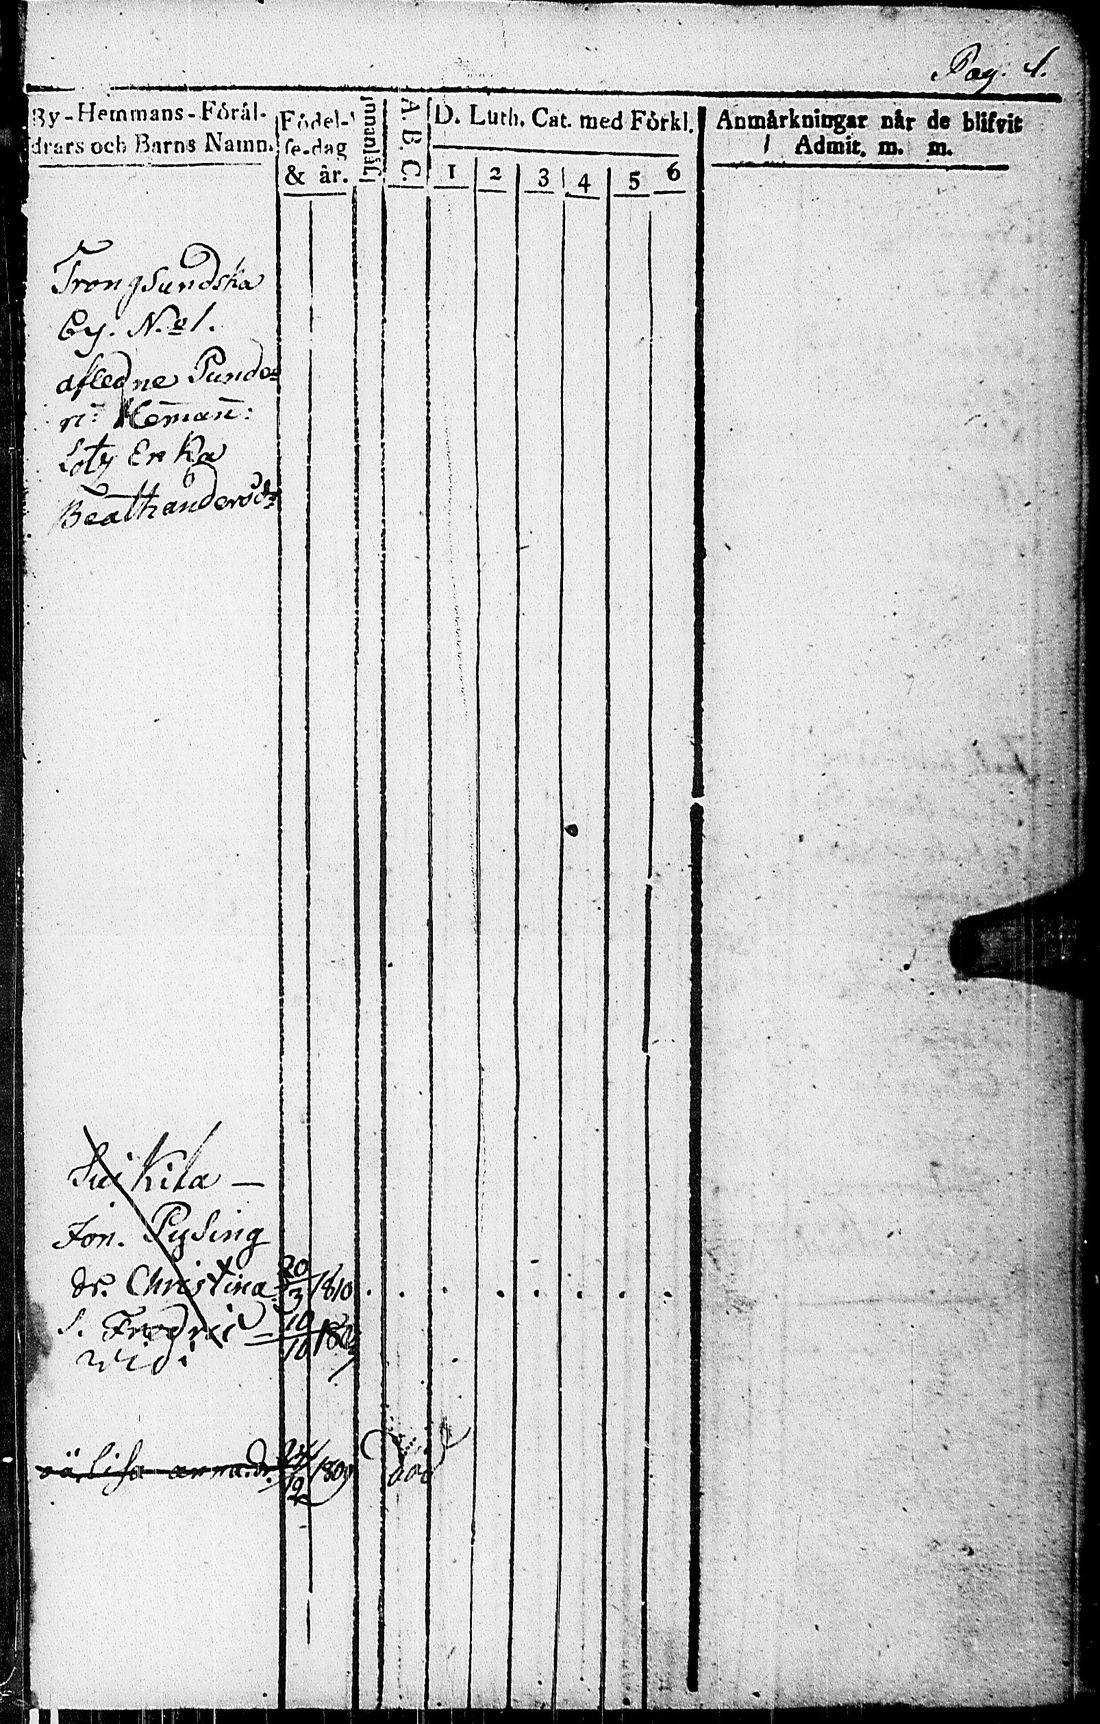 Pag. 1.
By-Hemmans-Föräl-
drars och Barns Namn.
Födel-
se-dag
& år.
Innanläs.
A.B.C.
D. Luth. Cat. med Förkl.
1 2 3 4 5 6
Anmärkningar när de blifvit
Admit. m. m.
Trongsundska
By. N:o 1.
afledne Punde-
ri: Heman:
Enka
Beath andersdr
Suikila —
Jon. Pysing
dr. Christina 20/3 1810
S. Fredric — 10/10
widi
Lisa anna dr. 24/12 1809 död